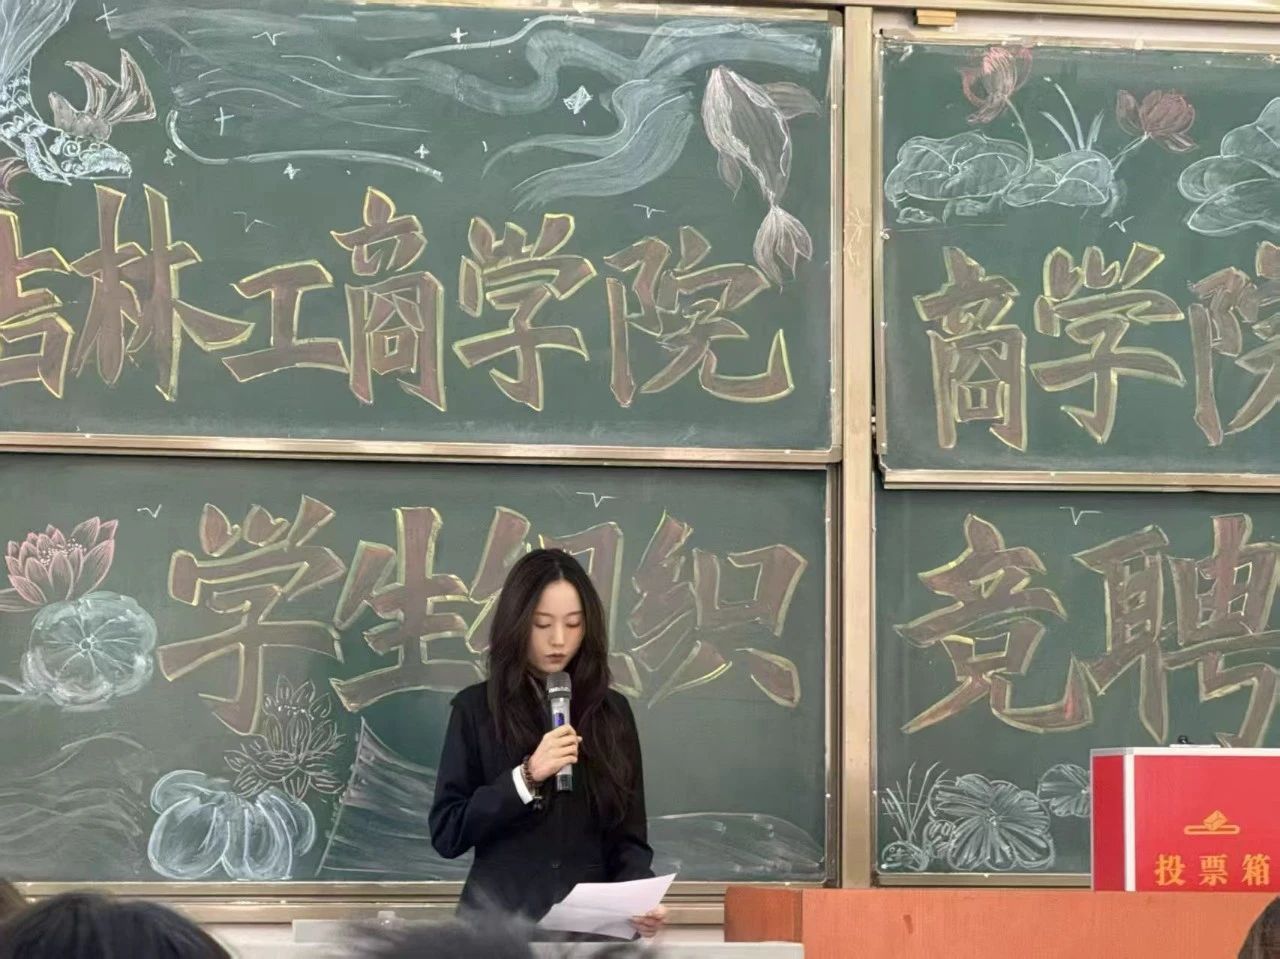 吉林工商学院
商学院
学生组织
竞聘
投票箱